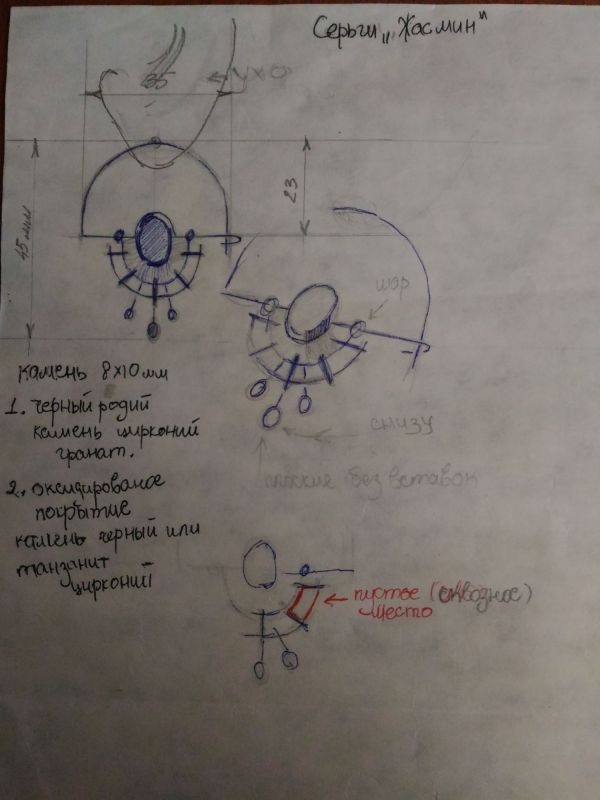 Серьги „Жасмин"
35
← ухо
45 мм
23
шар
камень 8х10 мм
1. черный родий
камень цирконий
гранат.
снизу
плоские без вставок
2. оксидированое
покрытие
камень черный или
танзанит
цирконий
пустое (сквозное)
место